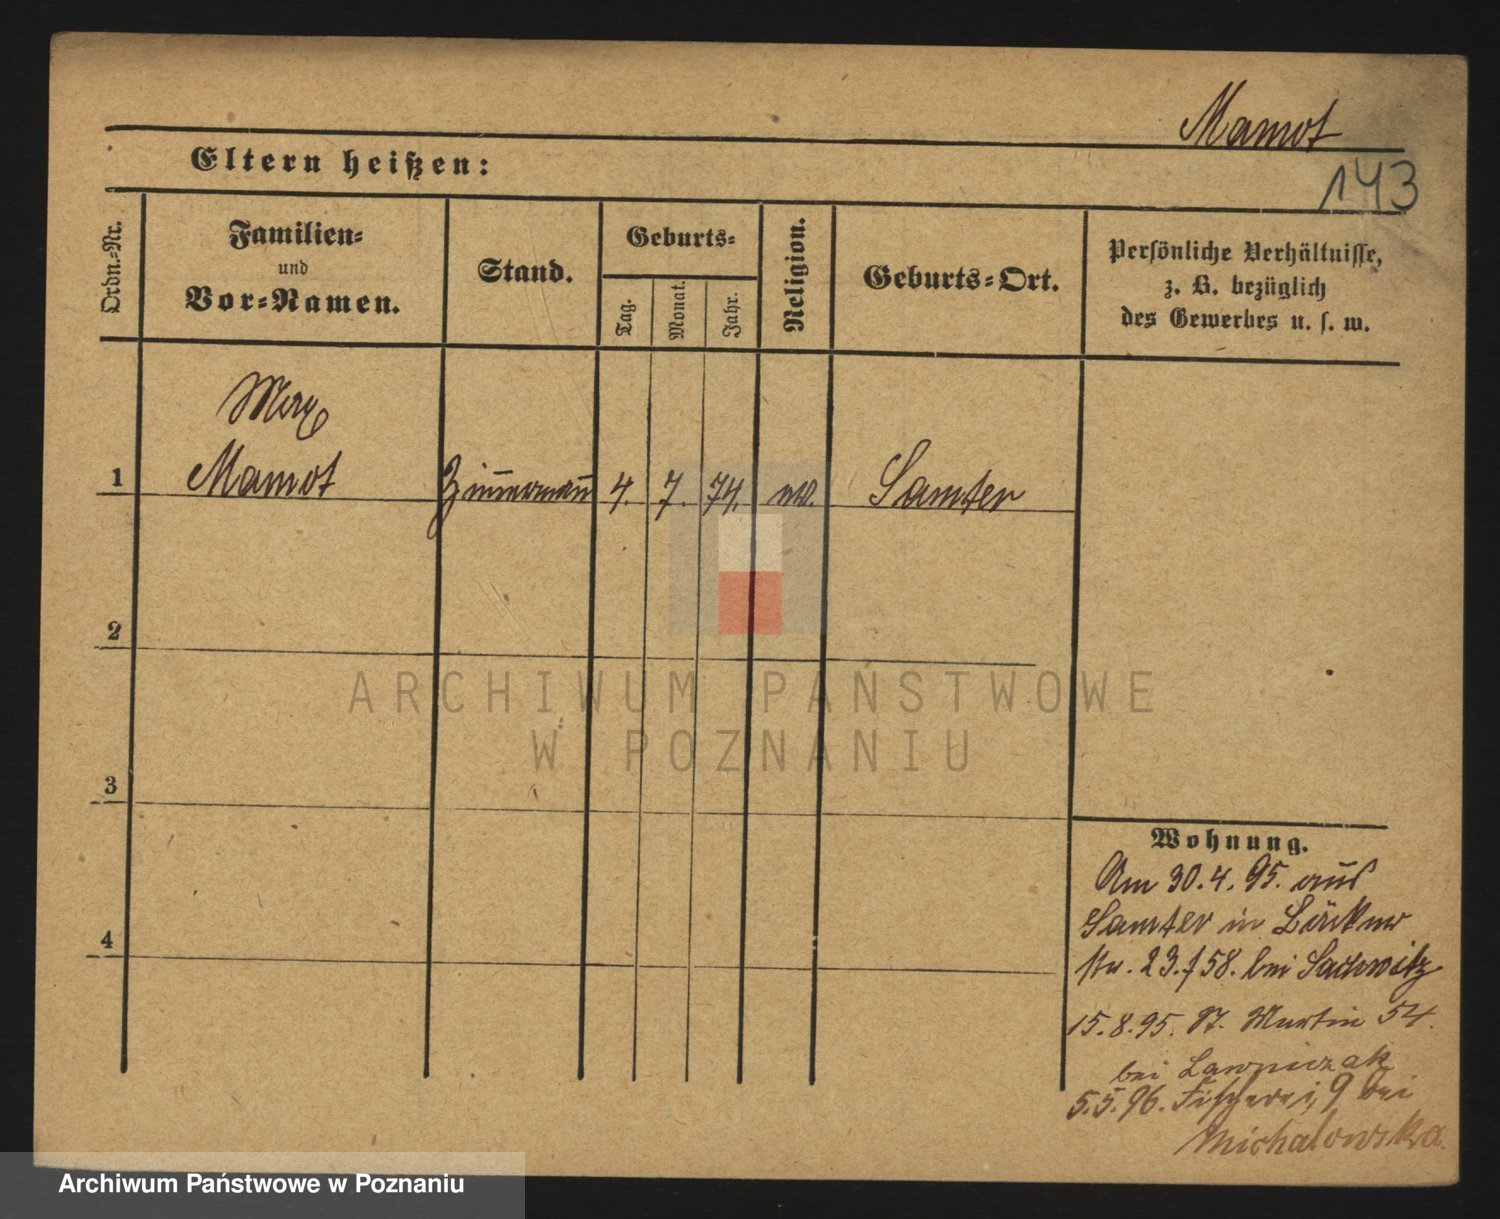 Mamot
Eltern heißen:
143
Ordn.-Nr.
Familien-
und
Vor-Namen.
Stand.
Geburts-
Tag.
Monat.
Jahr.
Religion.
Geburts-Ort.
Persönliche Verhältnisse,
z. B. bezüglich
des Gewerbes u. s. w.
Max
1 Mamot Zimmermann 4. 7. 74. ev. Samter
2
3
4
Wohnung.
Am 30.4.95. aus
Samter in
str. 23./58. bei Sachwitz
15.8.95. St. Martin 54.
bei Lawniczak
5.5.96. Fischerei 9 bei
Michalowska
ARCHIWUM PAŃSTWOWE
W POZNANIU
Archiwum Państwowe w Poznaniu